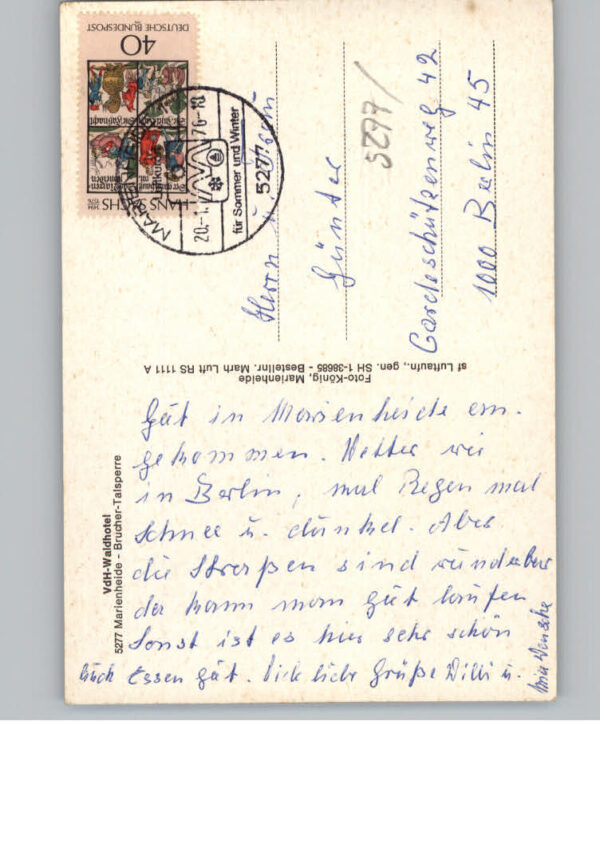 DEUTSCHE BUNDESPOST
40
HANS SACHS
MARIENHEIDE
20.-1. 76-18
für Sommer und Winter
5277
Herrn u.
Günter
Gardeschützenweg 42
1000 Berlin 45
5277/
Foto-König, Marienheide
sf Luftaufn., gen. SH 1-38685 - Bestellnr. Mach Luft RS 1111 A
VdH-Waldhotel
5277 Marienheide - Brucher-Talsperre
Gut in Marienheide an-
gekommen. Wetter wie
in Berlin, mal Regen mal
Schnee u. dunkel. Aber
die Straßen sind wunderbar
da kann man gut laufen
Sonst ist es hier sehr schön
Auch Essen gut. Viele liebe Grüße Willi u.